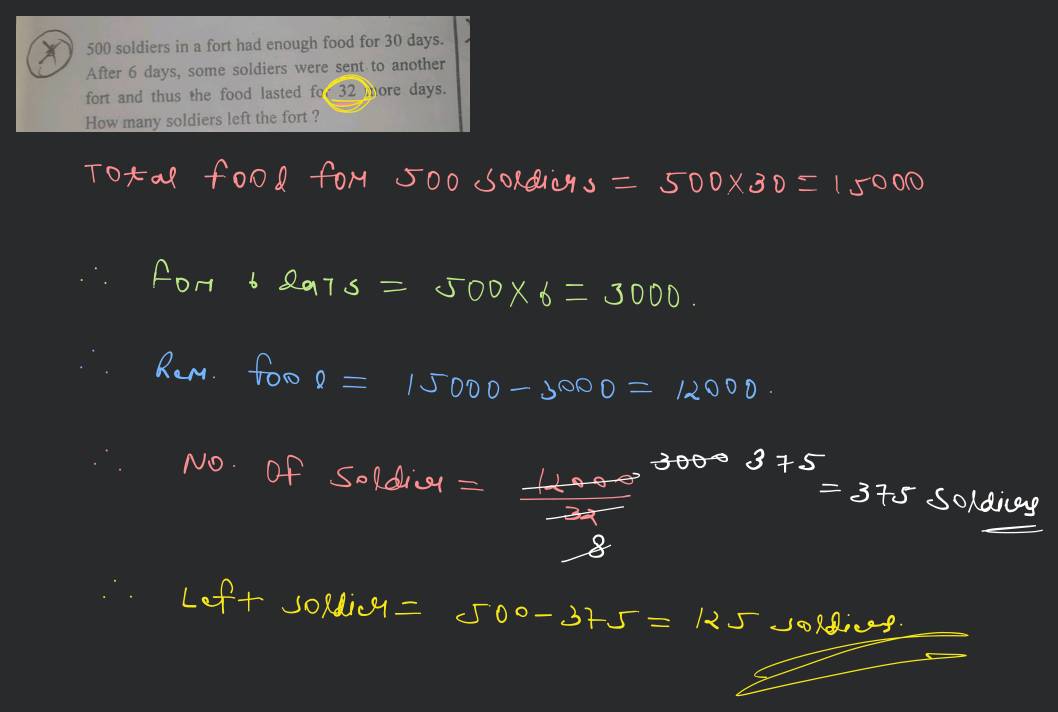 500 soldiers in a fort had enough food for 30 days.
After 6 days, some soldiers were sent to another
fort and thus the food lasted for 32 more days.
How many soldiers left the fort ?
Total food for 500 soldiers = 500×30 = 15000
∴ for 6 days = 500×6 = 3000.
∴ Rem. food = 15000 - 3000 = 12000.
3000 375
∴ No. of soldier = 12000 = 375 soldiers
32
8
∴ Left soldier = 500-375 = 125 soldiers.